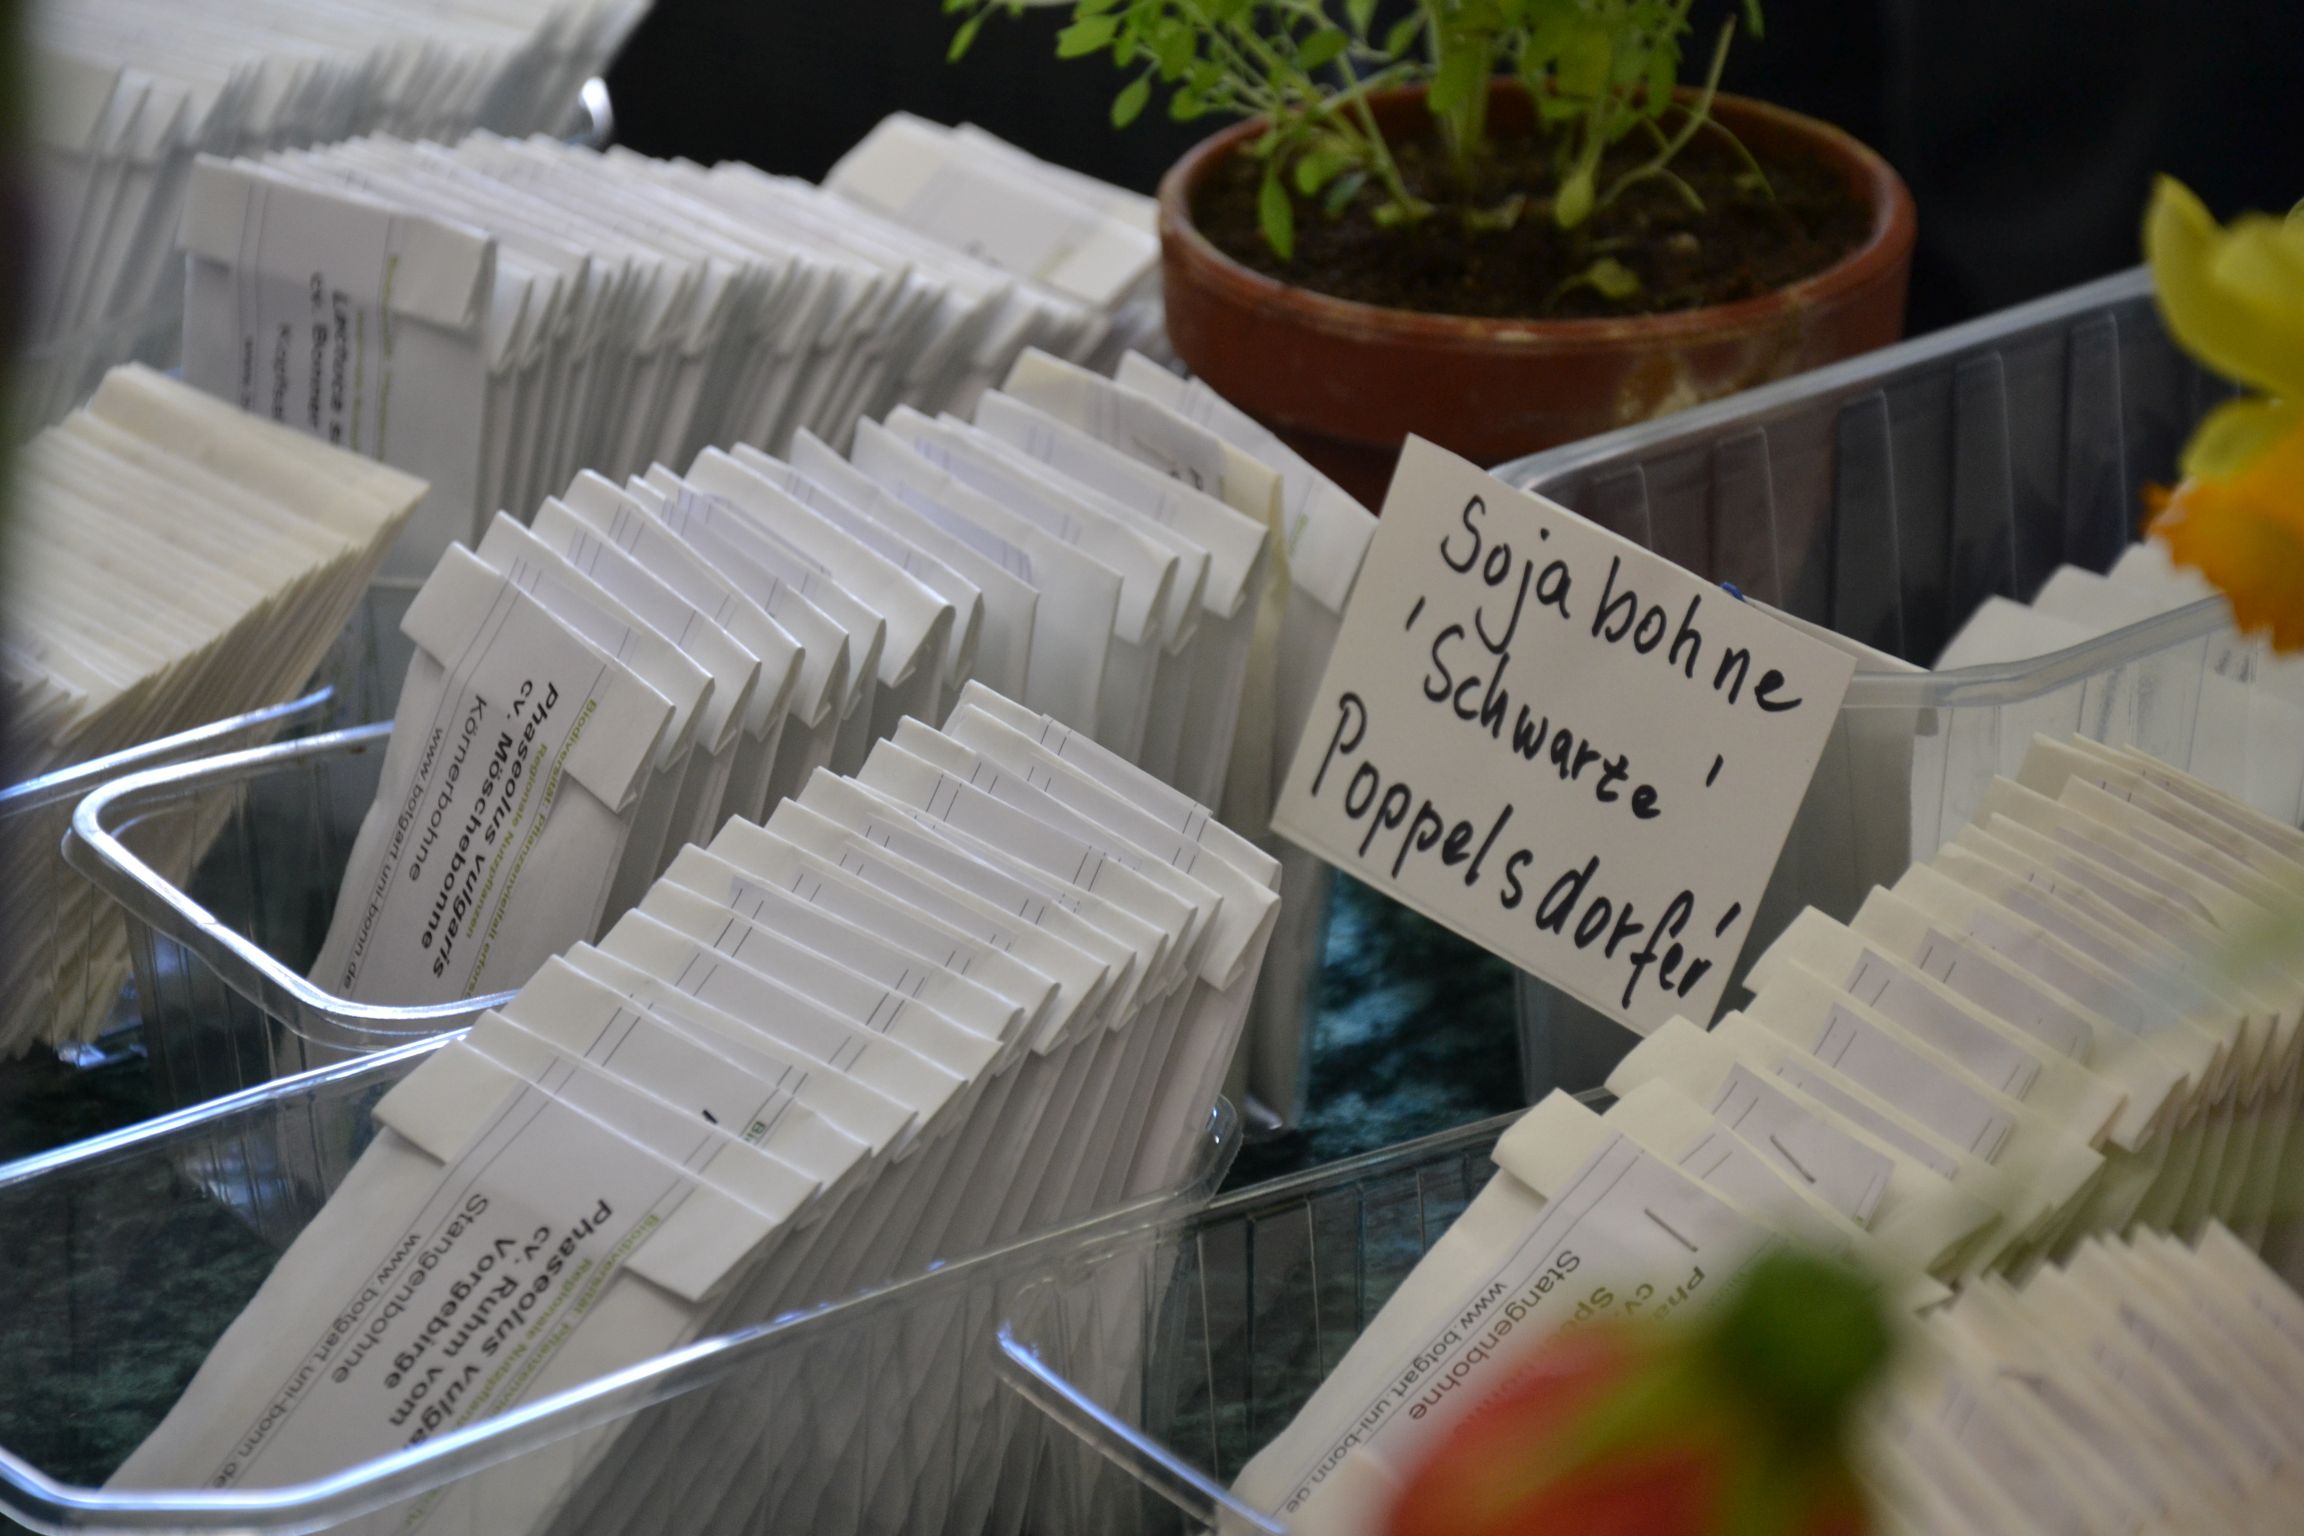 Lactuca
cv. Bonner
www.
Biodiversität Pflanzenvielfalt
Regionale Nutzpflanzen
Phaseolus vulgaris
cv. Möschebonne
Körnerbohne
www.botgart.uni-bonn.de
Sojabohne
'Schwarze'
Poppelsdorfer'
Regionale Nutzpflanzen
Phaseolus
cv. Ruhm vom
Vorgebirge
Stangenbohne
www.botgart.uni-bonn.de
cv.
Stangenbohne
www.botgart.uni-bonn.de